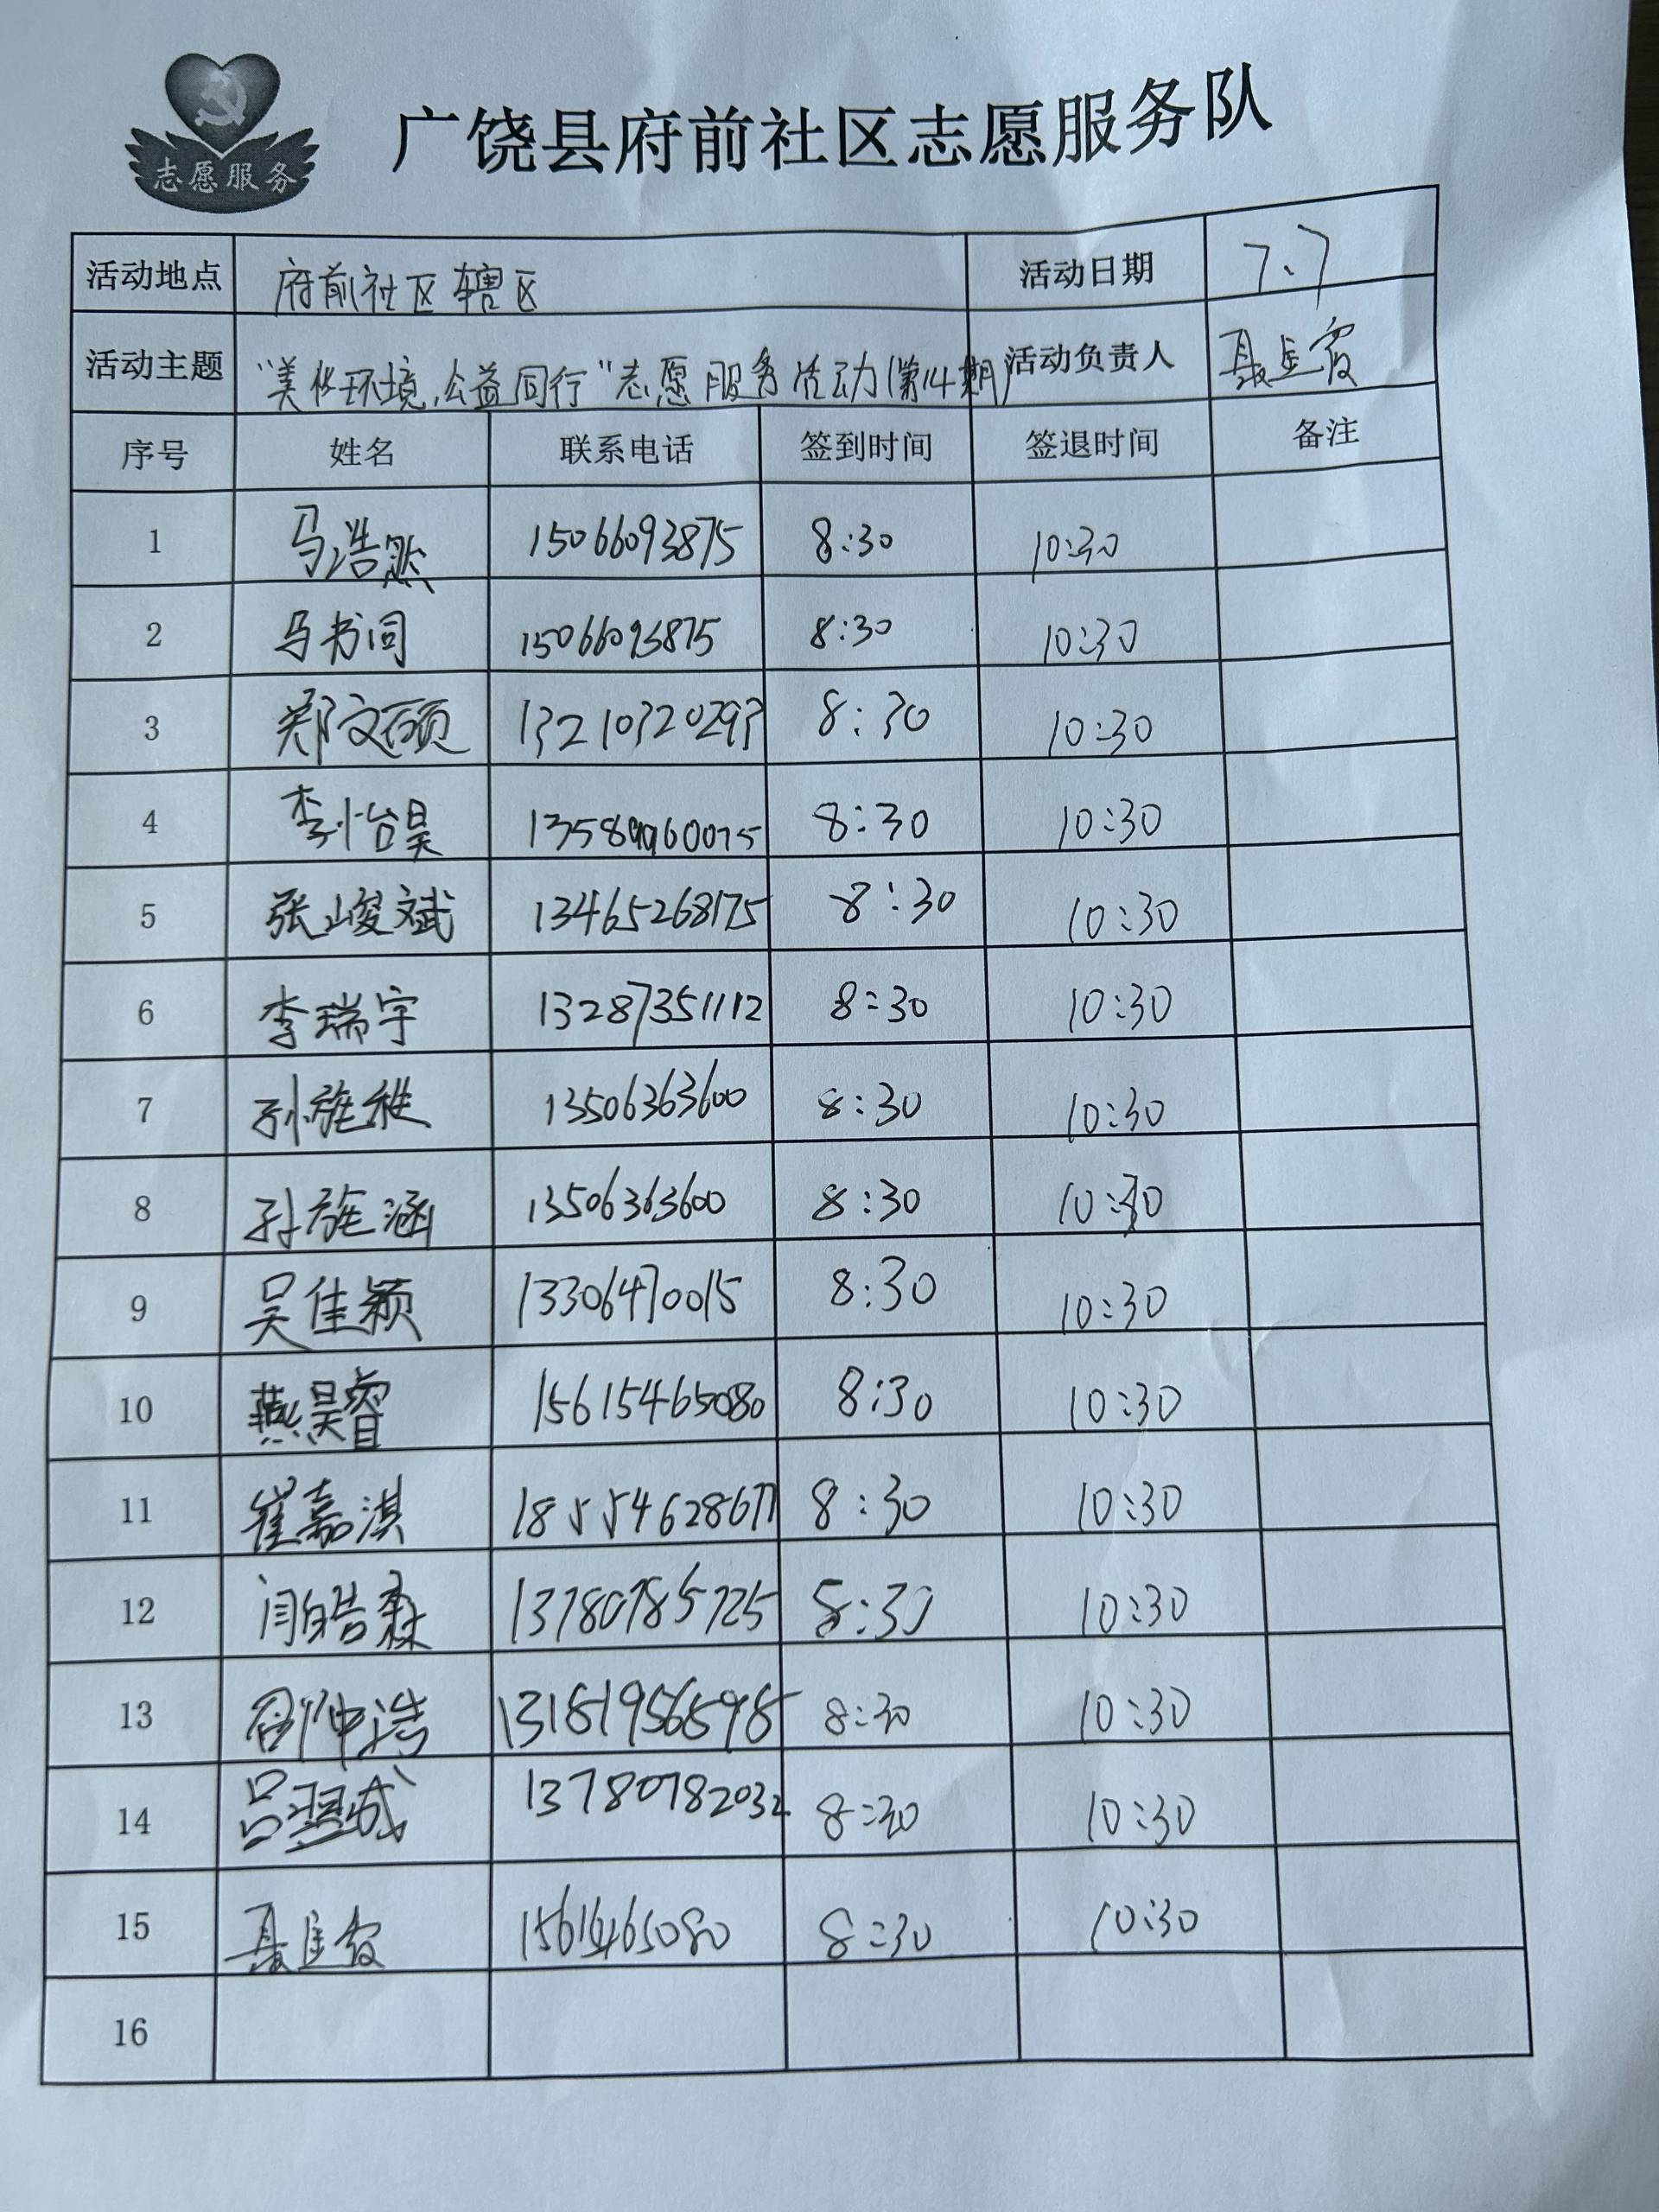 志愿服务
广饶县府前社区志愿服务队
活动地点 府前社区辖区 活动日期 7、7
活动主题 "美化环境,公益同行"志愿服务活动(第14期) 活动负责人 聂金霞
序号 姓名 联系电话 签到时间 签退时间 备注
1 马浩然 15066093875 8:30 10:30
2 马书同 15066093875 8:30 10:30
3 郑文硕 13210320293 8:30 10:30
4 李怡昊 13589960075 8:30 10:30
5 张峻斌 13465268175 8:30 10:30
6 李瑞宇 13287351112 8:30 10:30
7 13506363600 8:30 10:30
8 孙旌涵 13506363600 8:30 10:30
9 吴佳颖 13306470015 8:30 10:30
10 燕昊睿 15615465080 8:30 10:30
11 崔嘉淇 18554628677 8:30 10:30
12 闫皓森 13780785725 8:30 10:30
13 13181956598 8:30 10:30
14 13780782032 8:30 10:30
15 聂金霞 8:30 10:30
16